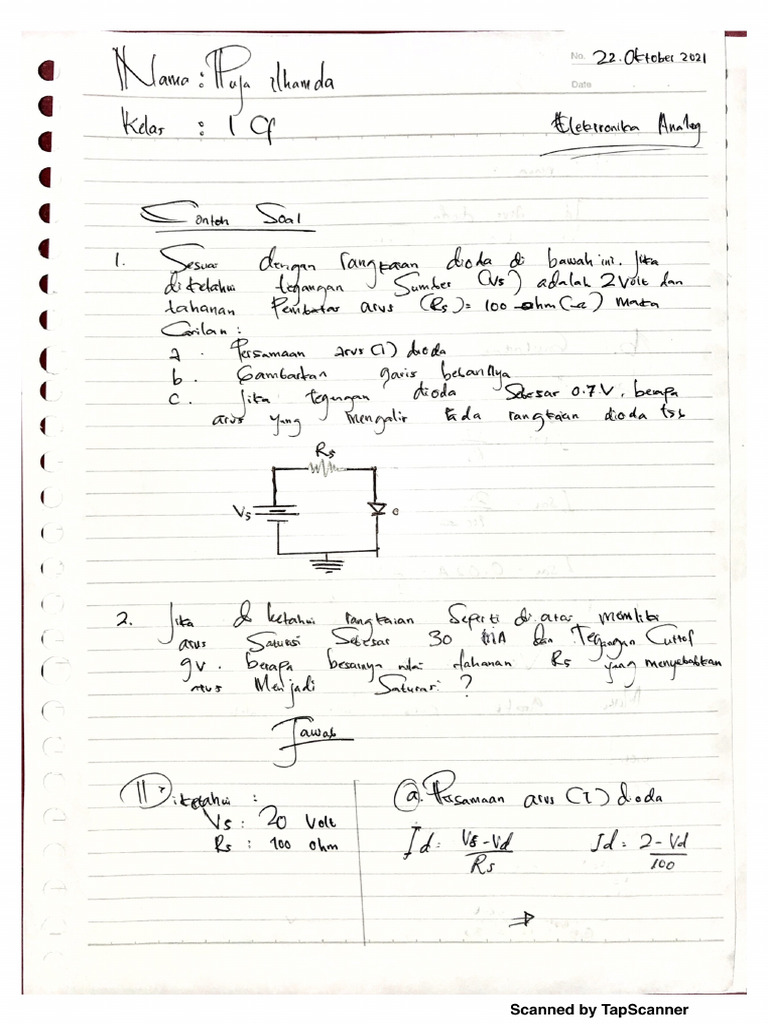 Nama : Puja ilhamda
No. 22. Oktober 2021
Date
Kelas : 1 G
Elektronika Analog
Contoh Soal
1. Sesuai dengan rangkaian dioda di bawah ini. Jika
diketahui tegangan Sumber (Vs) adalah 2 Volt dan
tahanan Pembatas arus (Rs) = 100 ohm (Ω) Maka
Carilah :
a. Persamaan arus (I) dioda
b. Gambarkan garis bebannya
c. Jika tegangan dioda Sebesar 0.7 V, berapa
arus yang mengalir Pada rangkaian dioda tsb
Rs
Vs
2. Jika diketahui rangkaian Seperti di atas memiliki
arus Saturasi Sebesar 30 mA dan Tegangan Cuttof
9V. berapa besarnya nilai tahanan Rs yang menyebabkan
arus Menjadi Saturasi ?
Jawab
1. Diketahui :
Vs : 20 Volt
Rs : 100 ohm
a. Persamaan arus (I) dioda
Id = Vs - Vd / Rs Id = 2 - Vd / 100
⇒
Scanned by TapScanner